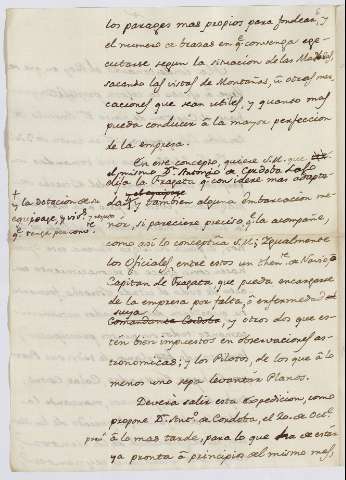 los parages mas propios para fondear, y
el numero de brazas en q.e convenga exe-
cutarse segun la situacion de las Mareas,
sacando las vistas de Montañas, ù otras mar-
caciones que sean utiles, y quanto mas
pueda conducir à la mayor perfeccion
de la empresa.
En este concepto, quiere S.M. que
el mismo D.n Antonio de Cordoba Laso
elija la Fragata q.e considere mas adapta-
da + y tambien alguna embarcacion me-
nor, si pareciere preciso q.e la acompañe,
como asi lo conceptua S.M.; Igualmente
los Oficiales, entre estos un Then.te de Navio ò
Capitan de Fragata que pueda encargarse
de la empresa por falta, ò enfermedad
suya
Comandante Cordoba, y otros dos que es-
tén bien impuestos en observaciones as-
tronomicas; y los Pilotos, de los que à lo
menos uno sepa levantar Planos.
Deverá salir esta expedicion, como
propone D.n Ant.o de Cordoba, el 20 de Oct.e
prox.o à lo mas tarde, para lo que ha de estar
ya pronta à principios del mismo mes,
+
y la dotacion de su
equipage, y
q.e tenga por conv.te